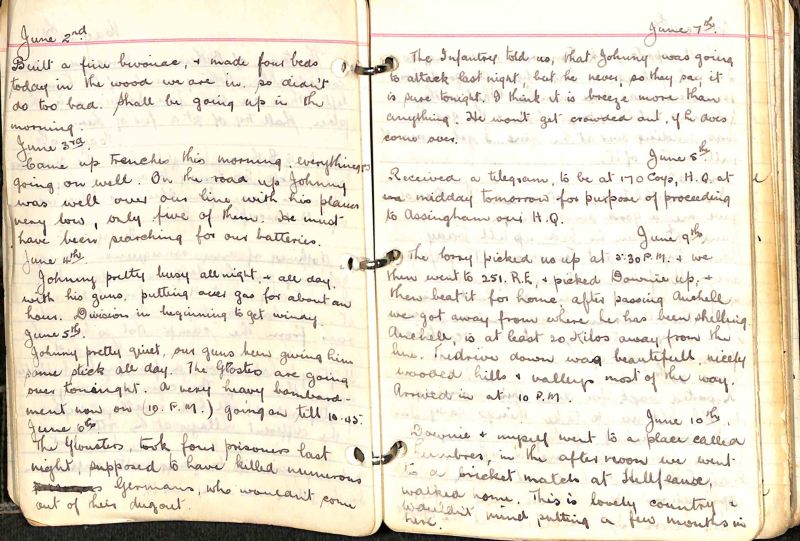 June 2nd
Built a fine bivouac, + made four beds
today in the wood we are in, so didn't
do too bad. Shall be going up in the
morning.
June 3rd
Came up trenches this morning, everything is
going on well. On the road up Johnny
was well over our line with his planes
very low, only five of them. He must
have been searching for our batteries.
June 4th.
Johnny pretty busy all night, + all day,
with his guns, putting over gas for about an
hour. Division in beginning to get windy.
June 5th.
Johnny pretty quiet, our guns been giving him
some stick all day. The Glosters are going
over tonight. A very heavy bombard-
ment now on (10. P.M.) going on till 10.45.
June 6th.
The Glousters, took four prisoners last
night, supposed to have killed numerous
Germans, who wouldn't come
out of their dugout.
June 7th.
The Infantry told us, that Johnny was going
to attack last night, but he never, so they say, it
is sure tonight. I think it is breeze more than
anything. He won't get crowded out, if he does
come over.
June 8th.
Received a telegram, to be at 170 Coys, H.Q. at
midday tomorrow for purpose of proceeding
to Assingham our H.Q.
June 9th.
The lorry picked us up at 5.30 P.M. + we
then went to 251. R.E, + picked Downie up, +
then beat it for home. after passing Auchell
we got away from where he has been shelling.
Auchell, is at least 20 Kilos away from the
line. The drive down was beautifull, nicely
wooded hills + valleys most of the way.
Arrived in at 10 P.M.
June 10th.
Downie + myself went to a place called
in the afternoon we went
to a cricket match at
walked home. This is lovely country +
wouldn't mind putting a few months in
here.